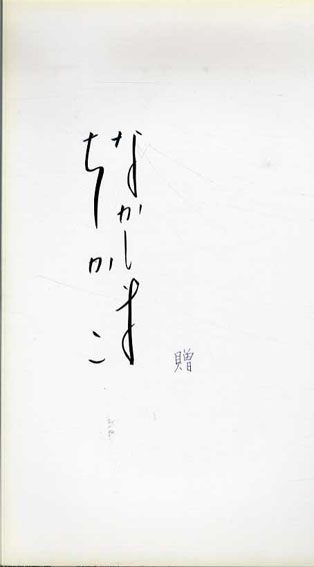 なかしま
ちかこ
贈